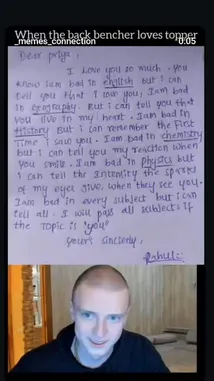 When the back bencher loves topper
_memes_connection
0:05
Dear priya,
I love you so much. You
know I am bad in english but i can
tell you that I love you, I am bad
in Geography. But i can tell you that
you live in my heart. I am bad in
History But i can remember the First
Time i saw you. I am bad in chemistry
but i can tell you my reaction when
you smile. I am bad in physics but
i can tell the Intensity the sparks
of my eyes give, when they see you.
I am bad in every subject but i can
tell all. I will pass all subjects if
the topic is "you"
yours sincerly,
Rahul